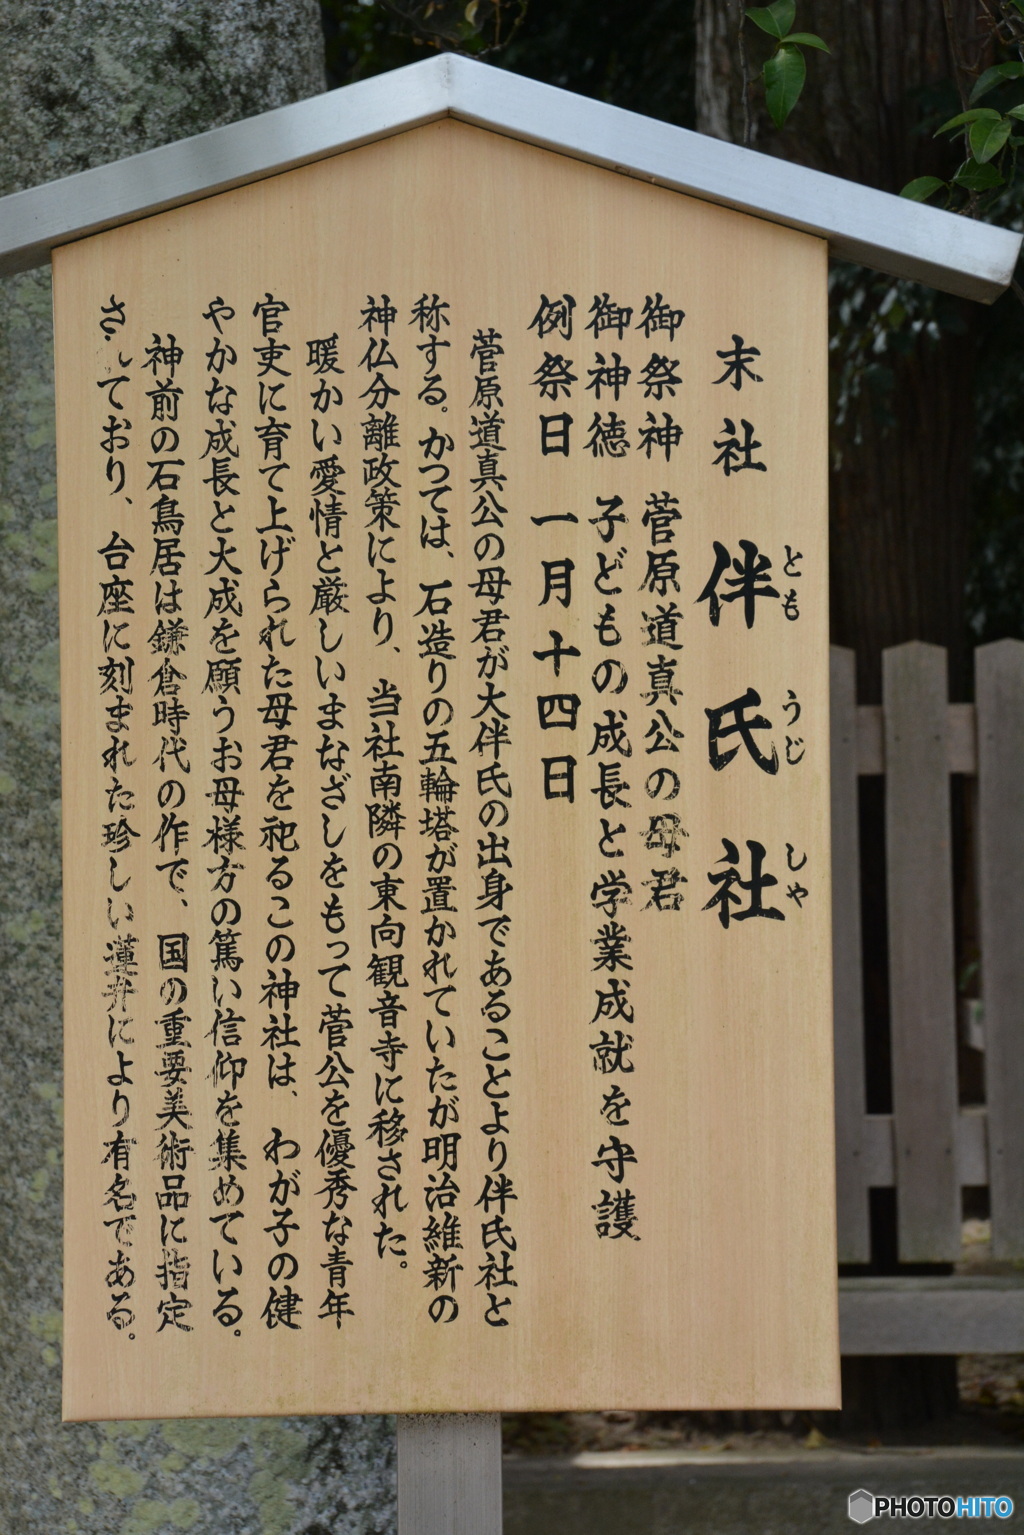 末社 伴氏社
とも うじ しゃ
御祭神 菅原道真公の母君
御神徳 子どもの成長と学業成就を守護
例祭日 一月十四日
菅原道真公の母君が大伴氏の出身であることより伴氏社と
称する。かつては、石造りの五輪塔が置かれていたが明治維新の
神仏分離政策により、当社南隣の東向観音寺に移された。
暖かい愛情と厳しいまなざしをもって菅公を優秀な青年
官吏に育て上げられた母君を祀るこの神社は、わが子の健
やかな成長と大成を願うお母様方の篤い信仰を集めている。
神前の石鳥居は鎌倉時代の作で、国の重要美術品に指定
されており、台座に刻まれた珍しい蓮弁により有名である。
PHOTOHITO